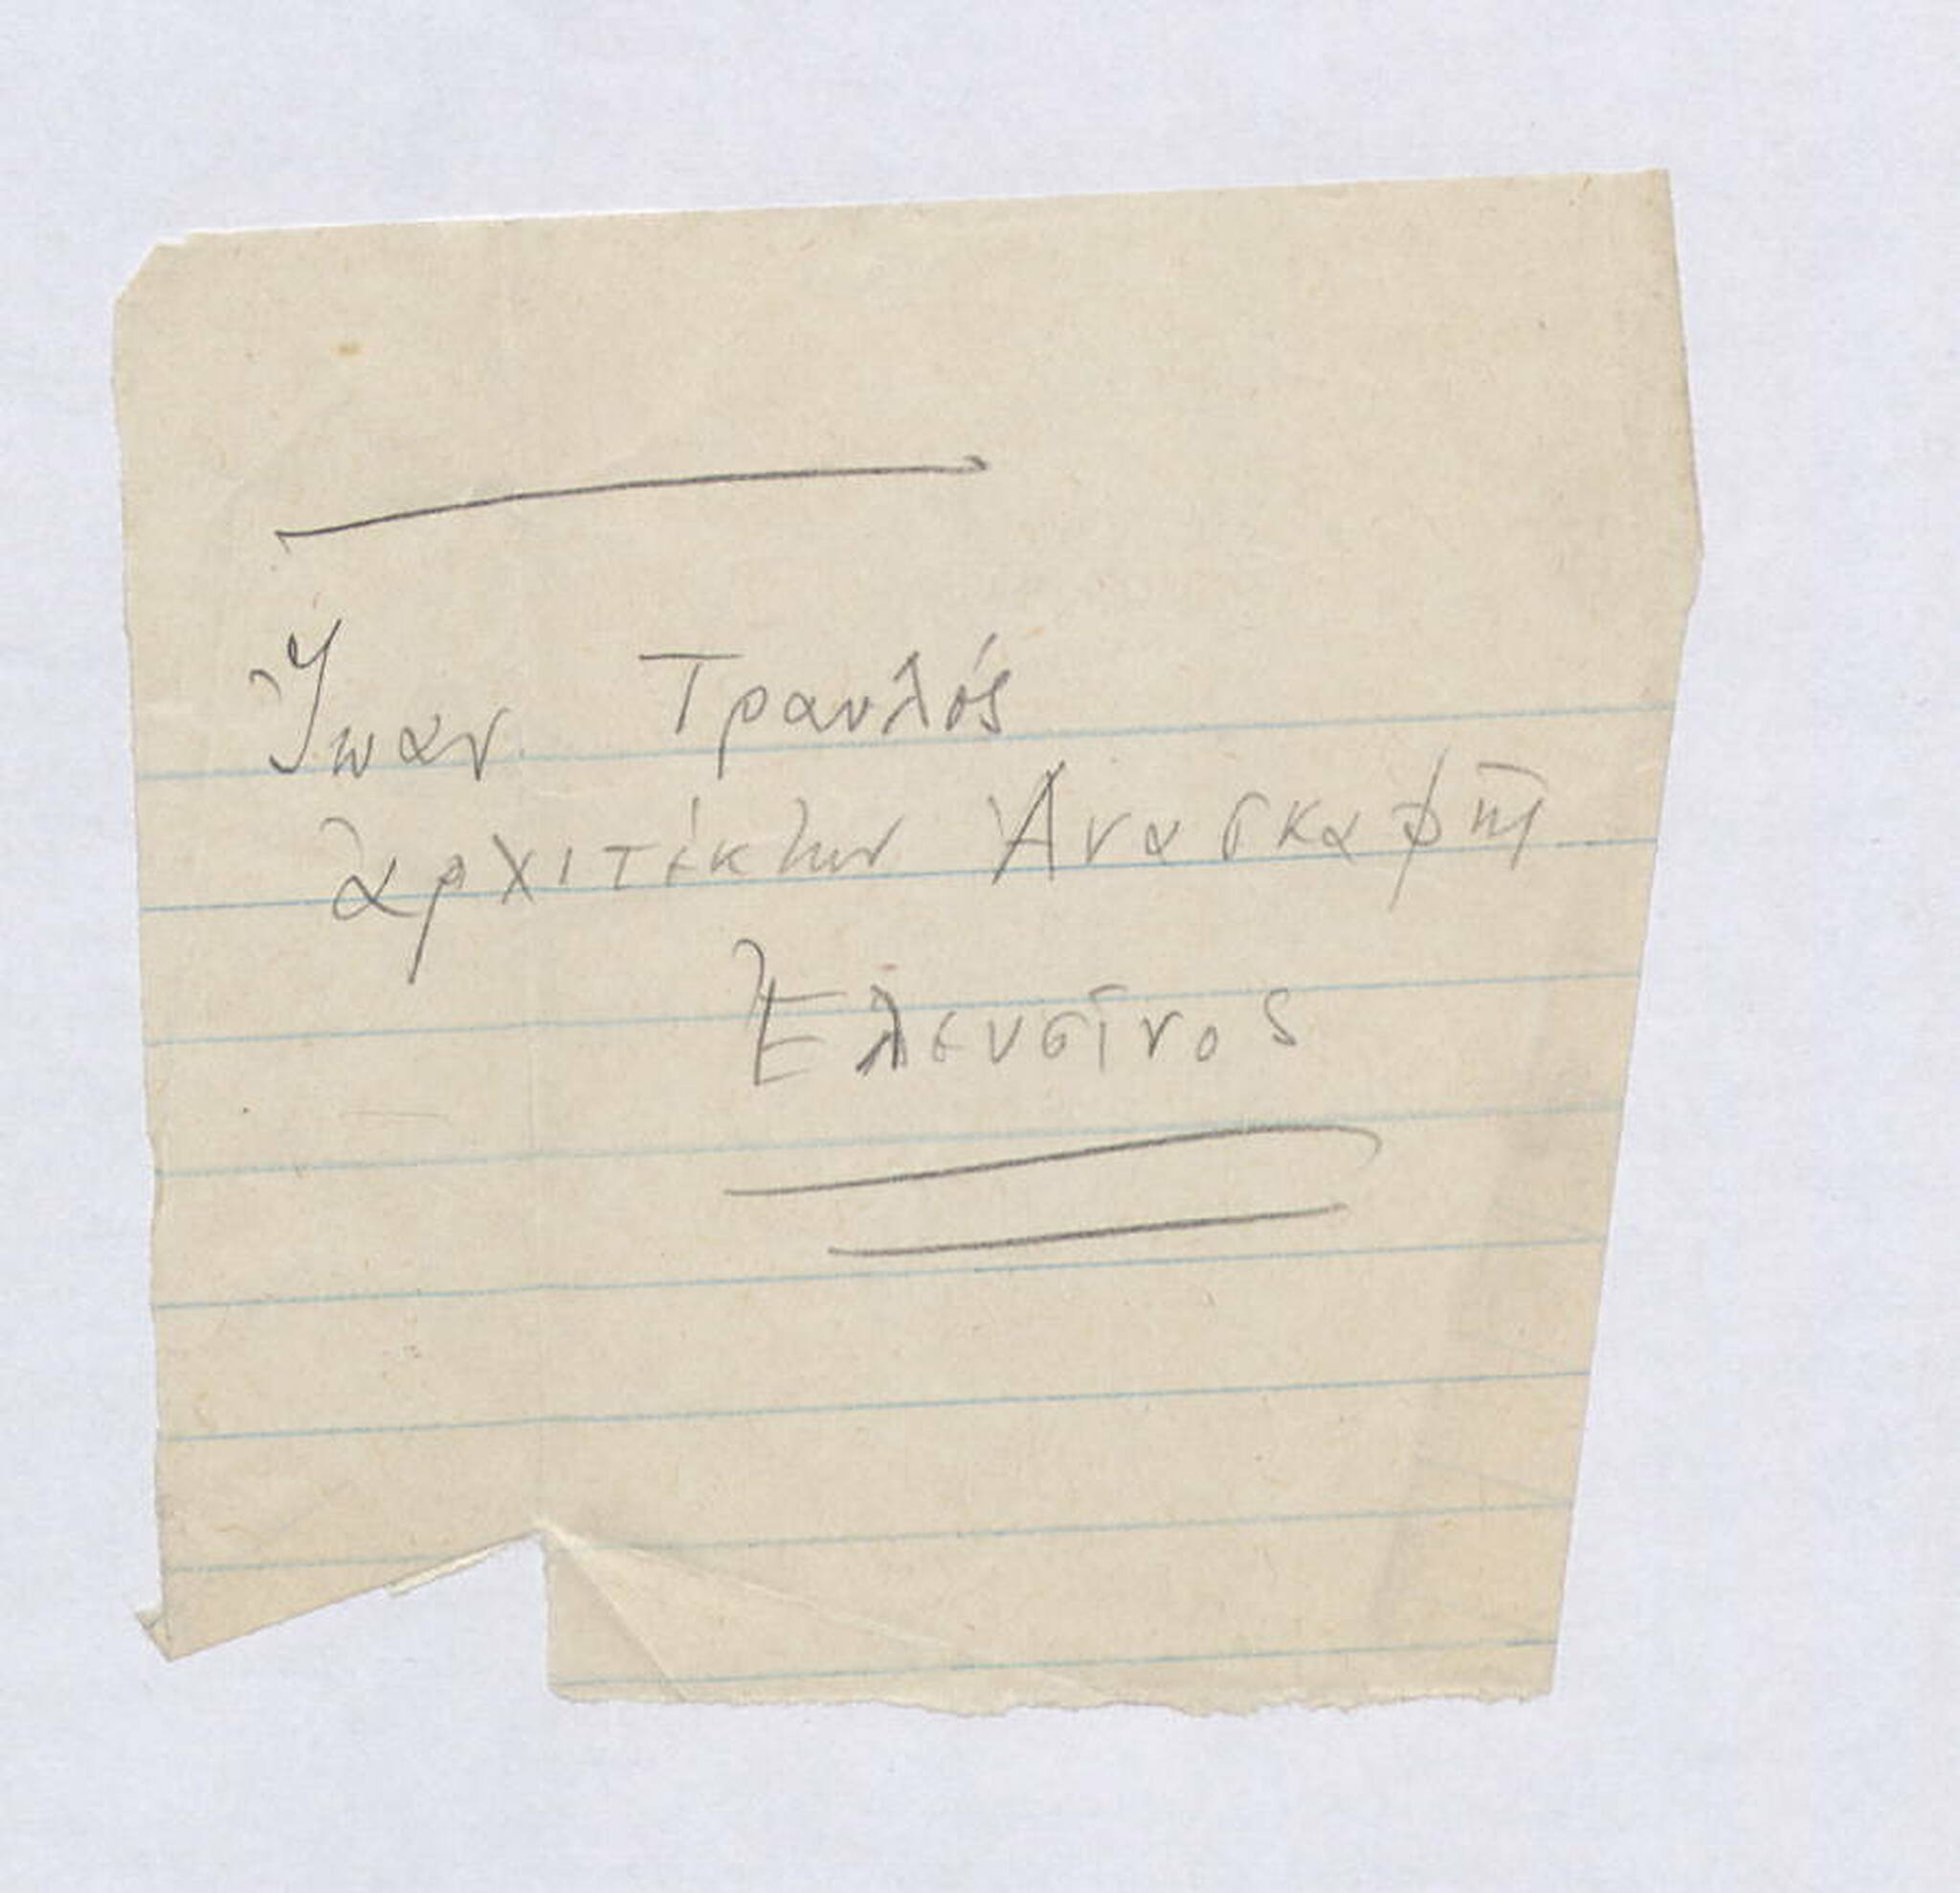 Ἰωαν. Τραυλός
ἀρχιτέκτων Ἀνασκαφῆς
Ἐλευσῖνος